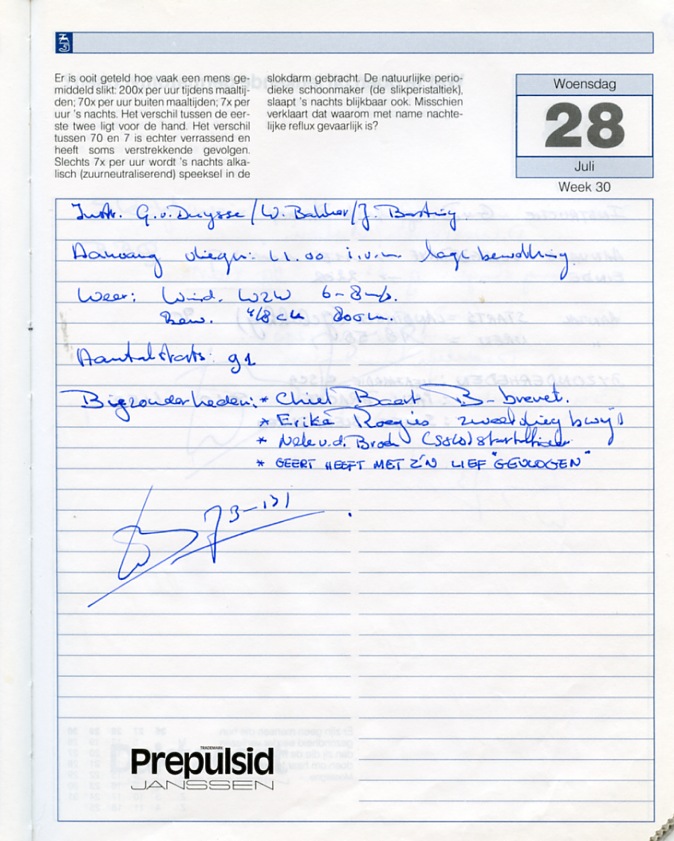 Er is ooit geteld hoe vaak een mens ge-
middeld slikt: 200x per uur tijdens maaltij-
den; 70x per uur buiten maaltijden; 7x per
uur 's nachts. Het verschil tussen de eer-
ste twee ligt voor de hand. Het verschil
tussen 70 en 7 is echter verrassend en
heeft soms verstrekkende gevolgen.
Slechts 7x per uur wordt 's nachts alka-
lisch (zuurneutraliserend) speeksel in de
slokdarm gebracht. De natuurlijke perio-
dieke schoonmaker (de slikperistaltiek),
slaapt 's nachts blijkbaar ook. Misschien
verklaart dat waarom met name nachte-
lijke reflux gevaarlijk is?
Woensdag
28
Juli
Week 30
Instr. G.v. Duysse / W. Bakker / J. Basting
Aanvang vliegen: 11.00 i.v.m lage bewolking.
Weer: Wind. WZW 6-8 m/s.
Bew. 4/8 cu 800m.
Aantal starts: 91
Bijzonderheden: * Chiel Baert B-brevet.
* Erika Roegies zweefvliegbwijs
* Nele v.d. Broek (solo)
* GEERT HEEFT MET Z'N LIEF "GEVLOGEN"
Prepulsid
JANSSEN